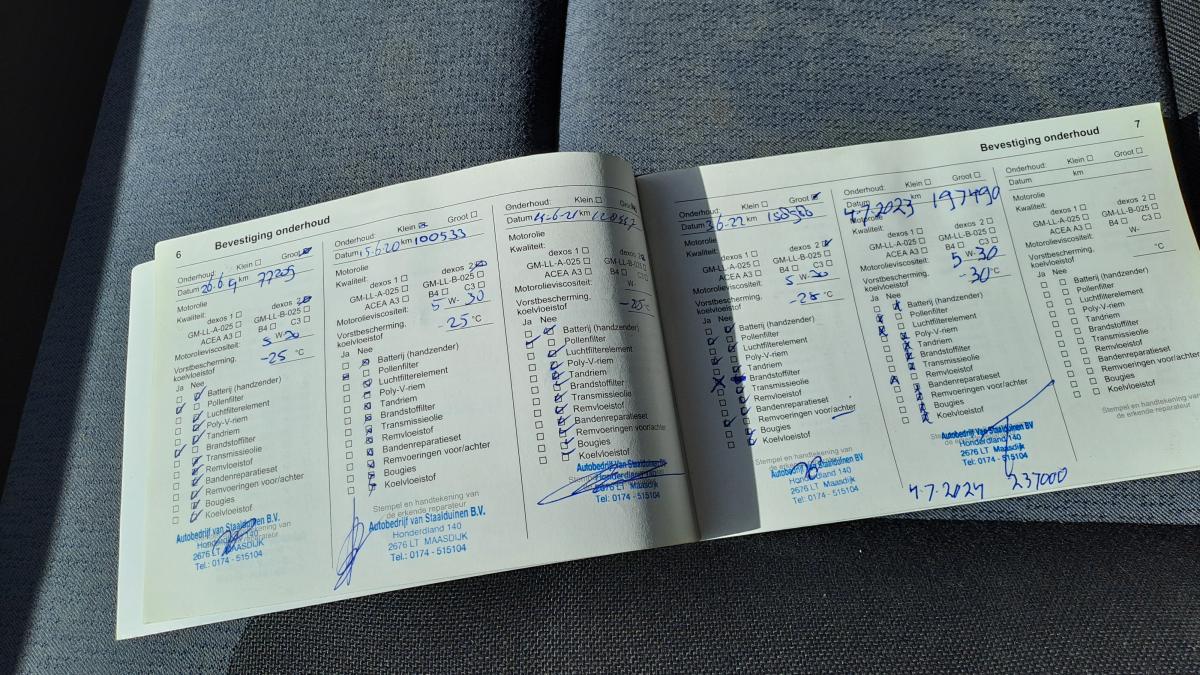 6
Bevestiging onderhoud
Onderhoud: Klein Groot
Datum km 77205
Motorolie
Kwaliteit: dexos 1 dexos 2
GM-LL-A-025 GM-LL-B-025
ACEA A3 B4 C3
Motorolieviscositeit: 5 W- 30
Vorstbescherming, koelvloeistof -25 °C
Ja Nee
Batterij (handzender)
Pollenfilter
Luchtfilterelement
Poly-V-riem
Tandriem
Brandstoffilter
Transmissieolie
Remvloeistof
Bandenreparatieset
Remvoeringen voor/achter
Bougies
Koelvloeistof
Autobedrijf van Staalduinen B.V.
Honderdland 140
2676 LT MAASDIJK
Tel.: 0174 - 515104
Onderhoud: Klein Groot
Datum 15.6.20 km 100533
Motorolie
Kwaliteit: dexos 1 dexos 2
GM-LL-A-025 GM-LL-B-025
ACEA A3 B4 C3
Motorolieviscositeit: 5 W- 30
Vorstbescherming, koelvloeistof -25 °C
Ja Nee
Batterij (handzender)
Pollenfilter
Luchtfilterelement
Poly-V-riem
Tandriem
Brandstoffilter
Transmissieolie
Remvloeistof
Bandenreparatieset
Remvoeringen voor/achter
Bougies
Koelvloeistof
Stempel en handtekening van
de erkende reparateur
Autobedrijf van Staalduinen B.V.
Honderdland 140
2676 LT MAASDIJK
Tel.: 0174 - 515104
Onderhoud: Klein
Datum km
Motorolie
Kwaliteit: dexos 1
GM-LL-A-025 GM-LL-B-025
ACEA A3 B4
Motorolieviscositeit:
Vorstbescherming, koelvloeistof -25°C
Ja Nee
Batterij (handzender)
Pollenfilter
Luchtfilterelement
Poly-V-riem
Tandriem
Brandstoffilter
Transmissieolie
Remvloeistof
Bandenreparatieset
Remvoeringen voor/achter
Bougies
Koelvloeistof
Autobedrijf van Staalduinen BV
Honderdland 140
2676 LT Maasdijk
Tel: 0174 - 515104
Bevestiging onderhoud
7
Onderhoud: Klein Groot
Datum 3.6.22 km
Motorolie
Kwaliteit: dexos 1 dexos 2
GM-LL-A-025 GM-LL-B-025
ACEA A3 B4 C3
Motorolieviscositeit: 5 W- 30
Vorstbescherming, koelvloeistof °C
Ja Nee
Batterij (handzender)
Pollenfilter
Luchtfilterelement
Poly-V-riem
Tandriem
Brandstoffilter
Transmissieolie
Remvloeistof
Bandenreparatieset
Remvoeringen voor/achter
Bougies
Koelvloeistof
Stempel en handtekening van
Autobedrijf van Staalduinen BV
Honderdland 140
2676 LT Maasdijk
Tel: 0174 - 515104
Onderhoud: Klein Groot
4.7.2023 197490
Motorolie
Kwaliteit: dexos 1 dexos 2
GM-LL-A-025 GM-LL-B-025
ACEA A3 B4 C3
Motorolieviscositeit: 5 W- 30
Vorstbescherming, koelvloeistof -30°C
Ja Nee
Batterij (handzender)
Pollenfilter
Luchtfilterelement
Poly-V-riem
Tandriem
Brandstoffilter
Transmissieolie
Remvloeistof
Bandenreparatieset
Remvoeringen voor/achter
Bougies
Koelvloeistof
Autobedrijf van Staalduinen BV
Honderdland 140
2676 LT Maasdijk
Tel: 0174 - 515104
4.7.2024 237000
Onderhoud: Klein Groot
Datum km
Motorolie
Kwaliteit: dexos 1 dexos 2
GM-LL-A-025 GM-LL-B-025
ACEA A3 B4 C3
Motorolieviscositeit: W-
Vorstbescherming, koelvloeistof °C
Ja Nee
Batterij (handzender)
Pollenfilter
Luchtfilterelement
Poly-V-riem
Tandriem
Brandstoffilter
Transmissieolie
Remvloeistof
Bandenreparatieset
Remvoeringen voor/achter
Bougies
Koelvloeistof
Stempel en handtekening van
de erkende reparateur